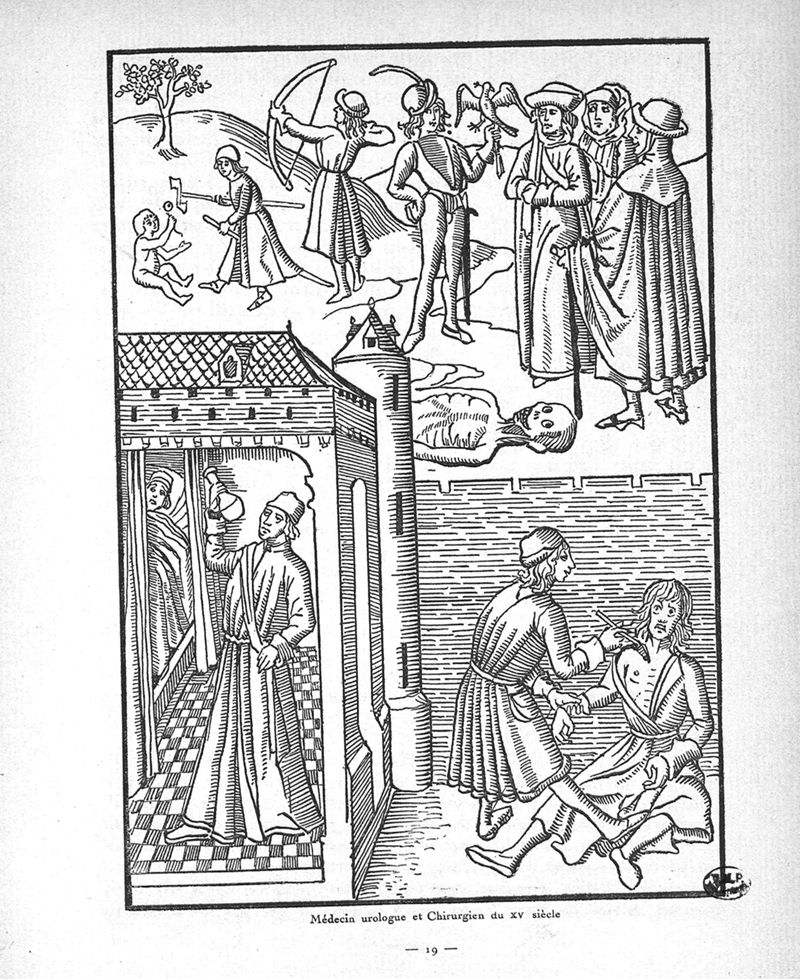 Médecin urologue et Chirurgien du XV siècle
— 19 —